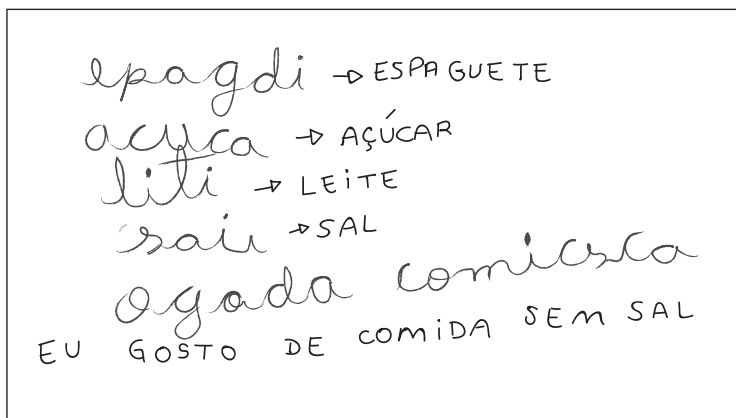 epagdi → ESPAGUETE
acuca → AÇÚCAR
liti → LEITE
sau → SAL
ogada comicsca
EU GOSTO DE COMIDA SEM SAL